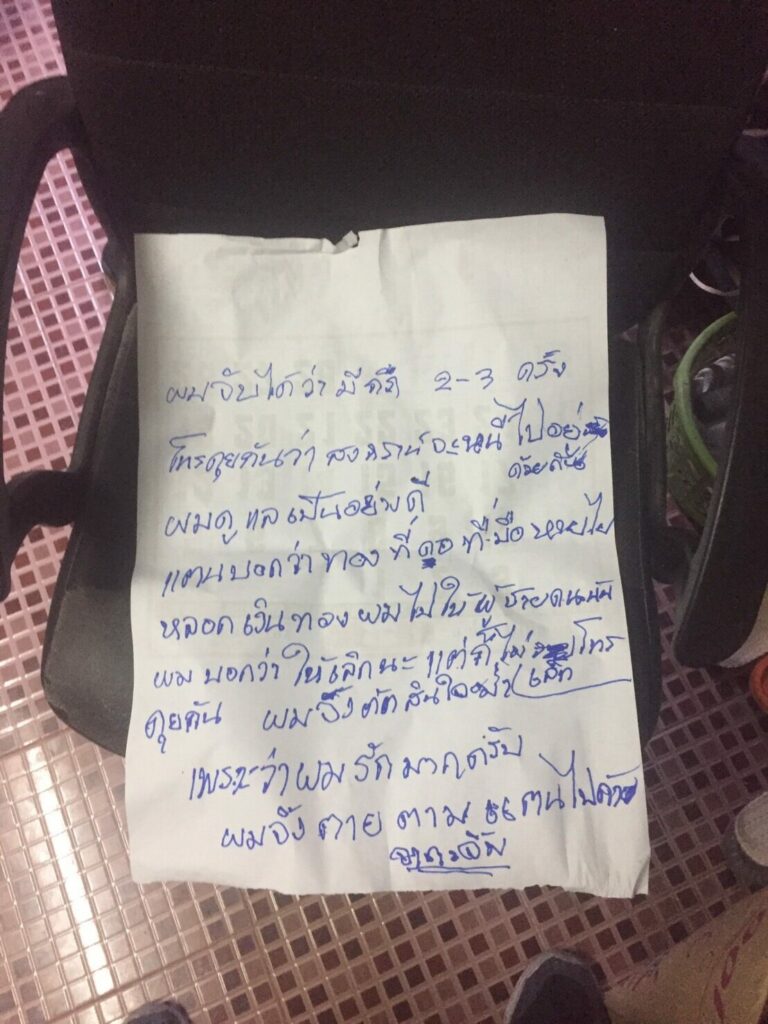 ผมจับได้ว่า มี 2-3 ครั้ง
โทรคุยกันว่า สงกรานต์จะหนีไปอยู่
ด้วยกัน
ผมดูแลเป็นอย่างดี
แตนบอกว่าทองที่คอ ที่มือหายไป
หลอกเงินทองผมไปให้ผู้ชายคนนั้น
ผมบอกว่าให้เลิกนะ แต่ก็ไม่ โทร
เลิก
คุยกัน ผมจึงตัดสินใจฆ่า
เพราะว่าผมรักมากครับ
ผมจึงตายตาม แตนไปด้วย